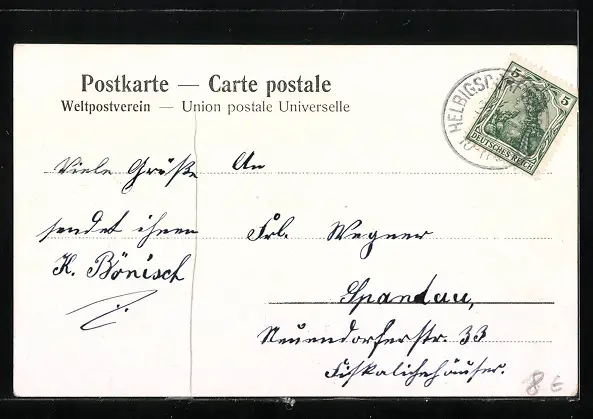 Postkarte — Carte postale
Weltpostverein — Union postale Universelle
HELBIGSDORF
10-11
5 5
DEUTSCHES REICH
Viele Grüße
sendet ihnen
K. Bönisch
An
Frl. Wegner
Spandau,
Neuendorferstr. 33
Fiskalichehäuser.
8 €